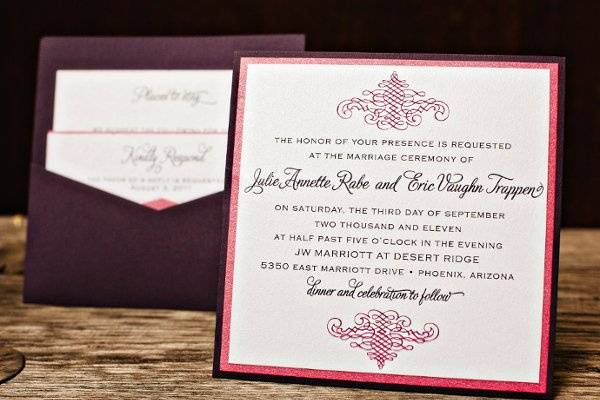 Places to stay
Kindly Respond
THE FAVOR OF A REPLY IS REQUESTED
AUGUST 5, 2011
THE HONOR OF YOUR PRESENCE IS REQUESTED
AT THE MARRIAGE CEREMONY OF
Julie Annette Rabe and Eric Vaughn Trappen
ON SATURDAY, THE THIRD DAY OF SEPTEMBER
TWO THOUSAND AND ELEVEN
AT HALF PAST FIVE O'CLOCK IN THE EVENING
JW MARRIOTT AT DESERT RIDGE
5350 EAST MARRIOTT DRIVE • PHOENIX, ARIZONA
dinner and celebration to follow